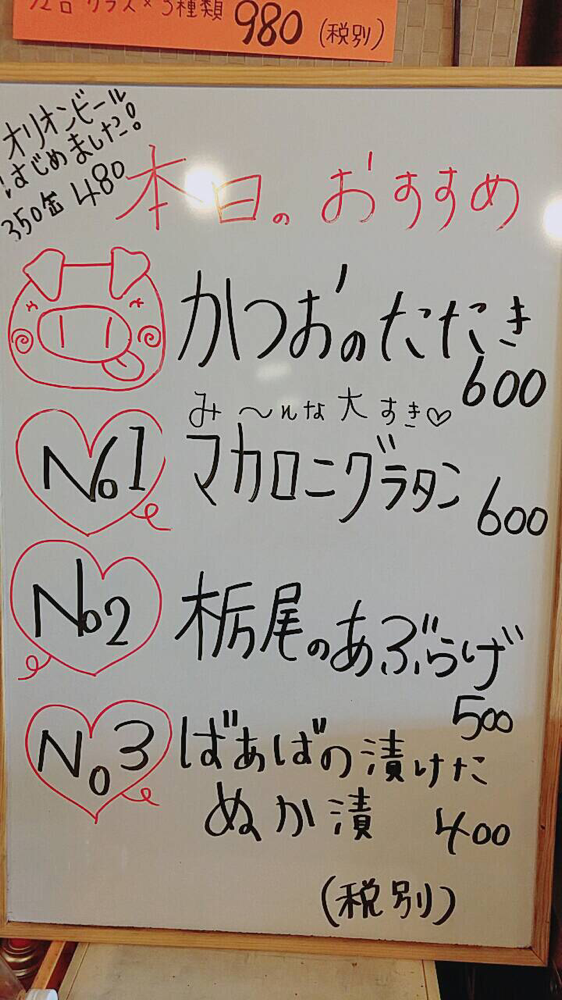 グラス×3種類 980 (税別)
オリオンビール
はじめました!
350缶 480
本日のおすすめ
かつおのたたき
600
み〜んな大すき♡
No1 マカロニグラタン
600
No2 栃尾のあぶらげ
500
No3 ばあばの漬けた
ぬか漬 400
(税別)